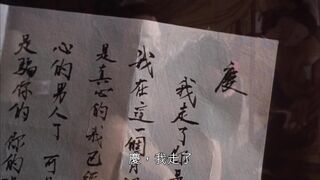 慶
我走了
我在這一個月
是真心的我已經
心的男人了 可
是騙你的 你的
慶，我走了